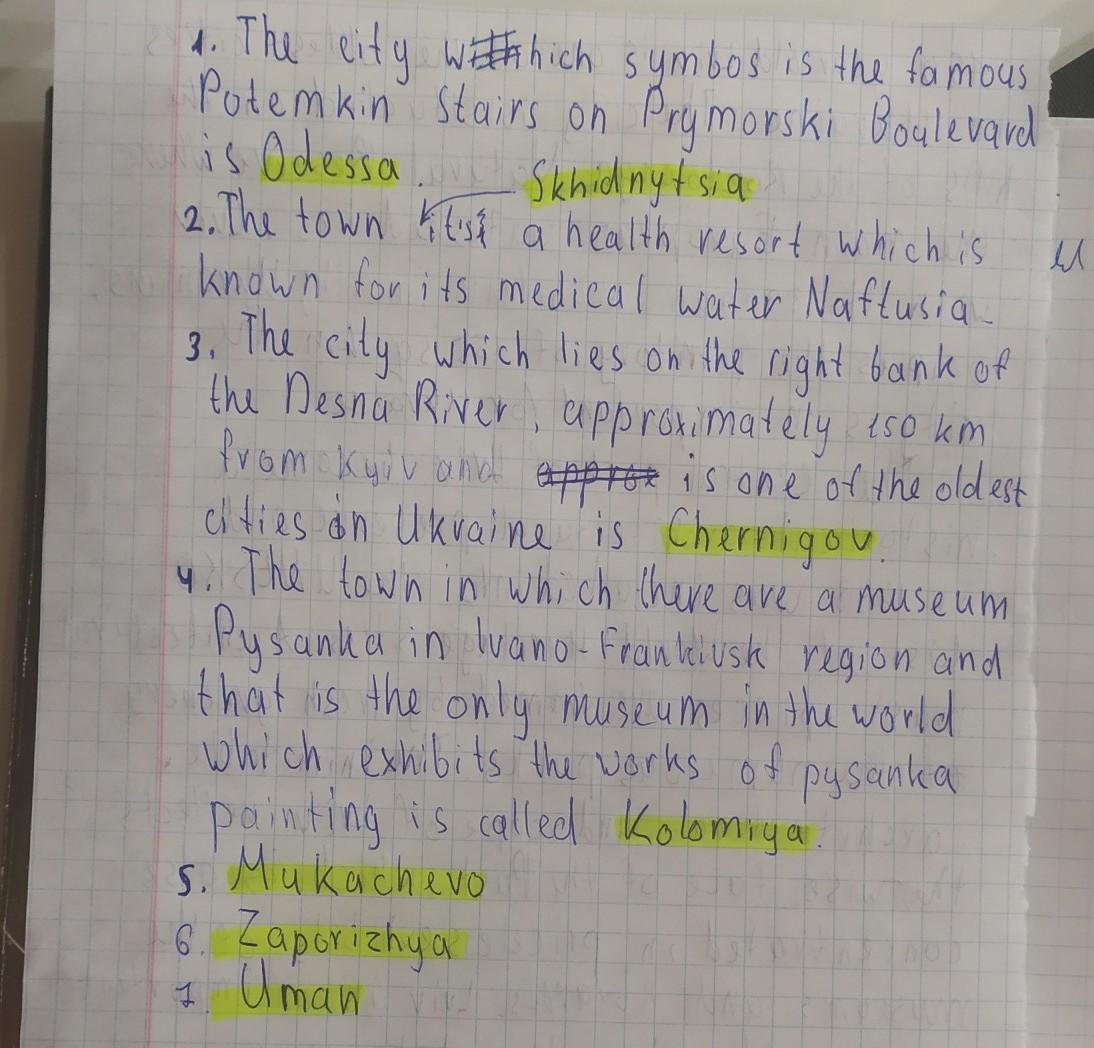 1. The city which symbos is the famous
Potemkin Stairs on Prymorski Boulevard
is Odessa.
Skhidnytsia
2. The town it's a health resort which is
known for its medical water Naftusia.
3. The city which lies on the right bank of
the Desna River, approximately 150 km
from Kyiv and approx is one of the oldest
cities in Ukraine is Chernigov.
4. The town in which there are a museum
Pysanka in Ivano-Frankivsk region and
that is the only museum in the world
which exhibits the works of pysanka
painting is called Kolomiya.
5. Mukachevo
6. Zaporizhya
7. Uman